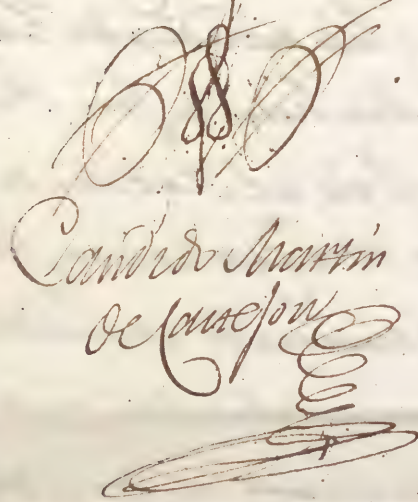 Candido Martin
de Cauzejon